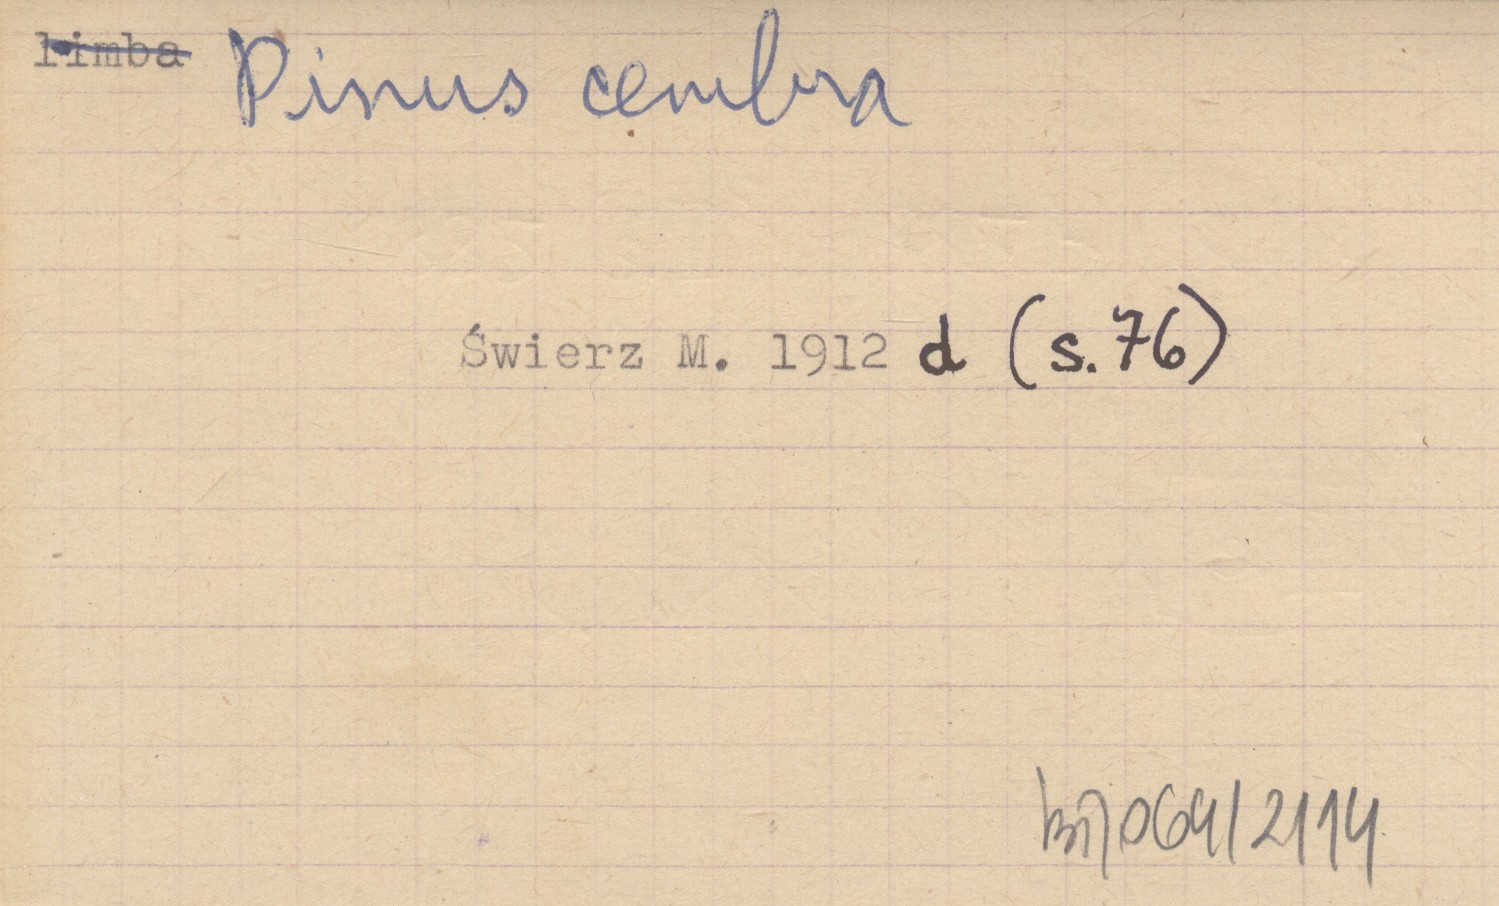 limba Pinus cembra
Świerz M. 1912 d (s.76)
064/2114